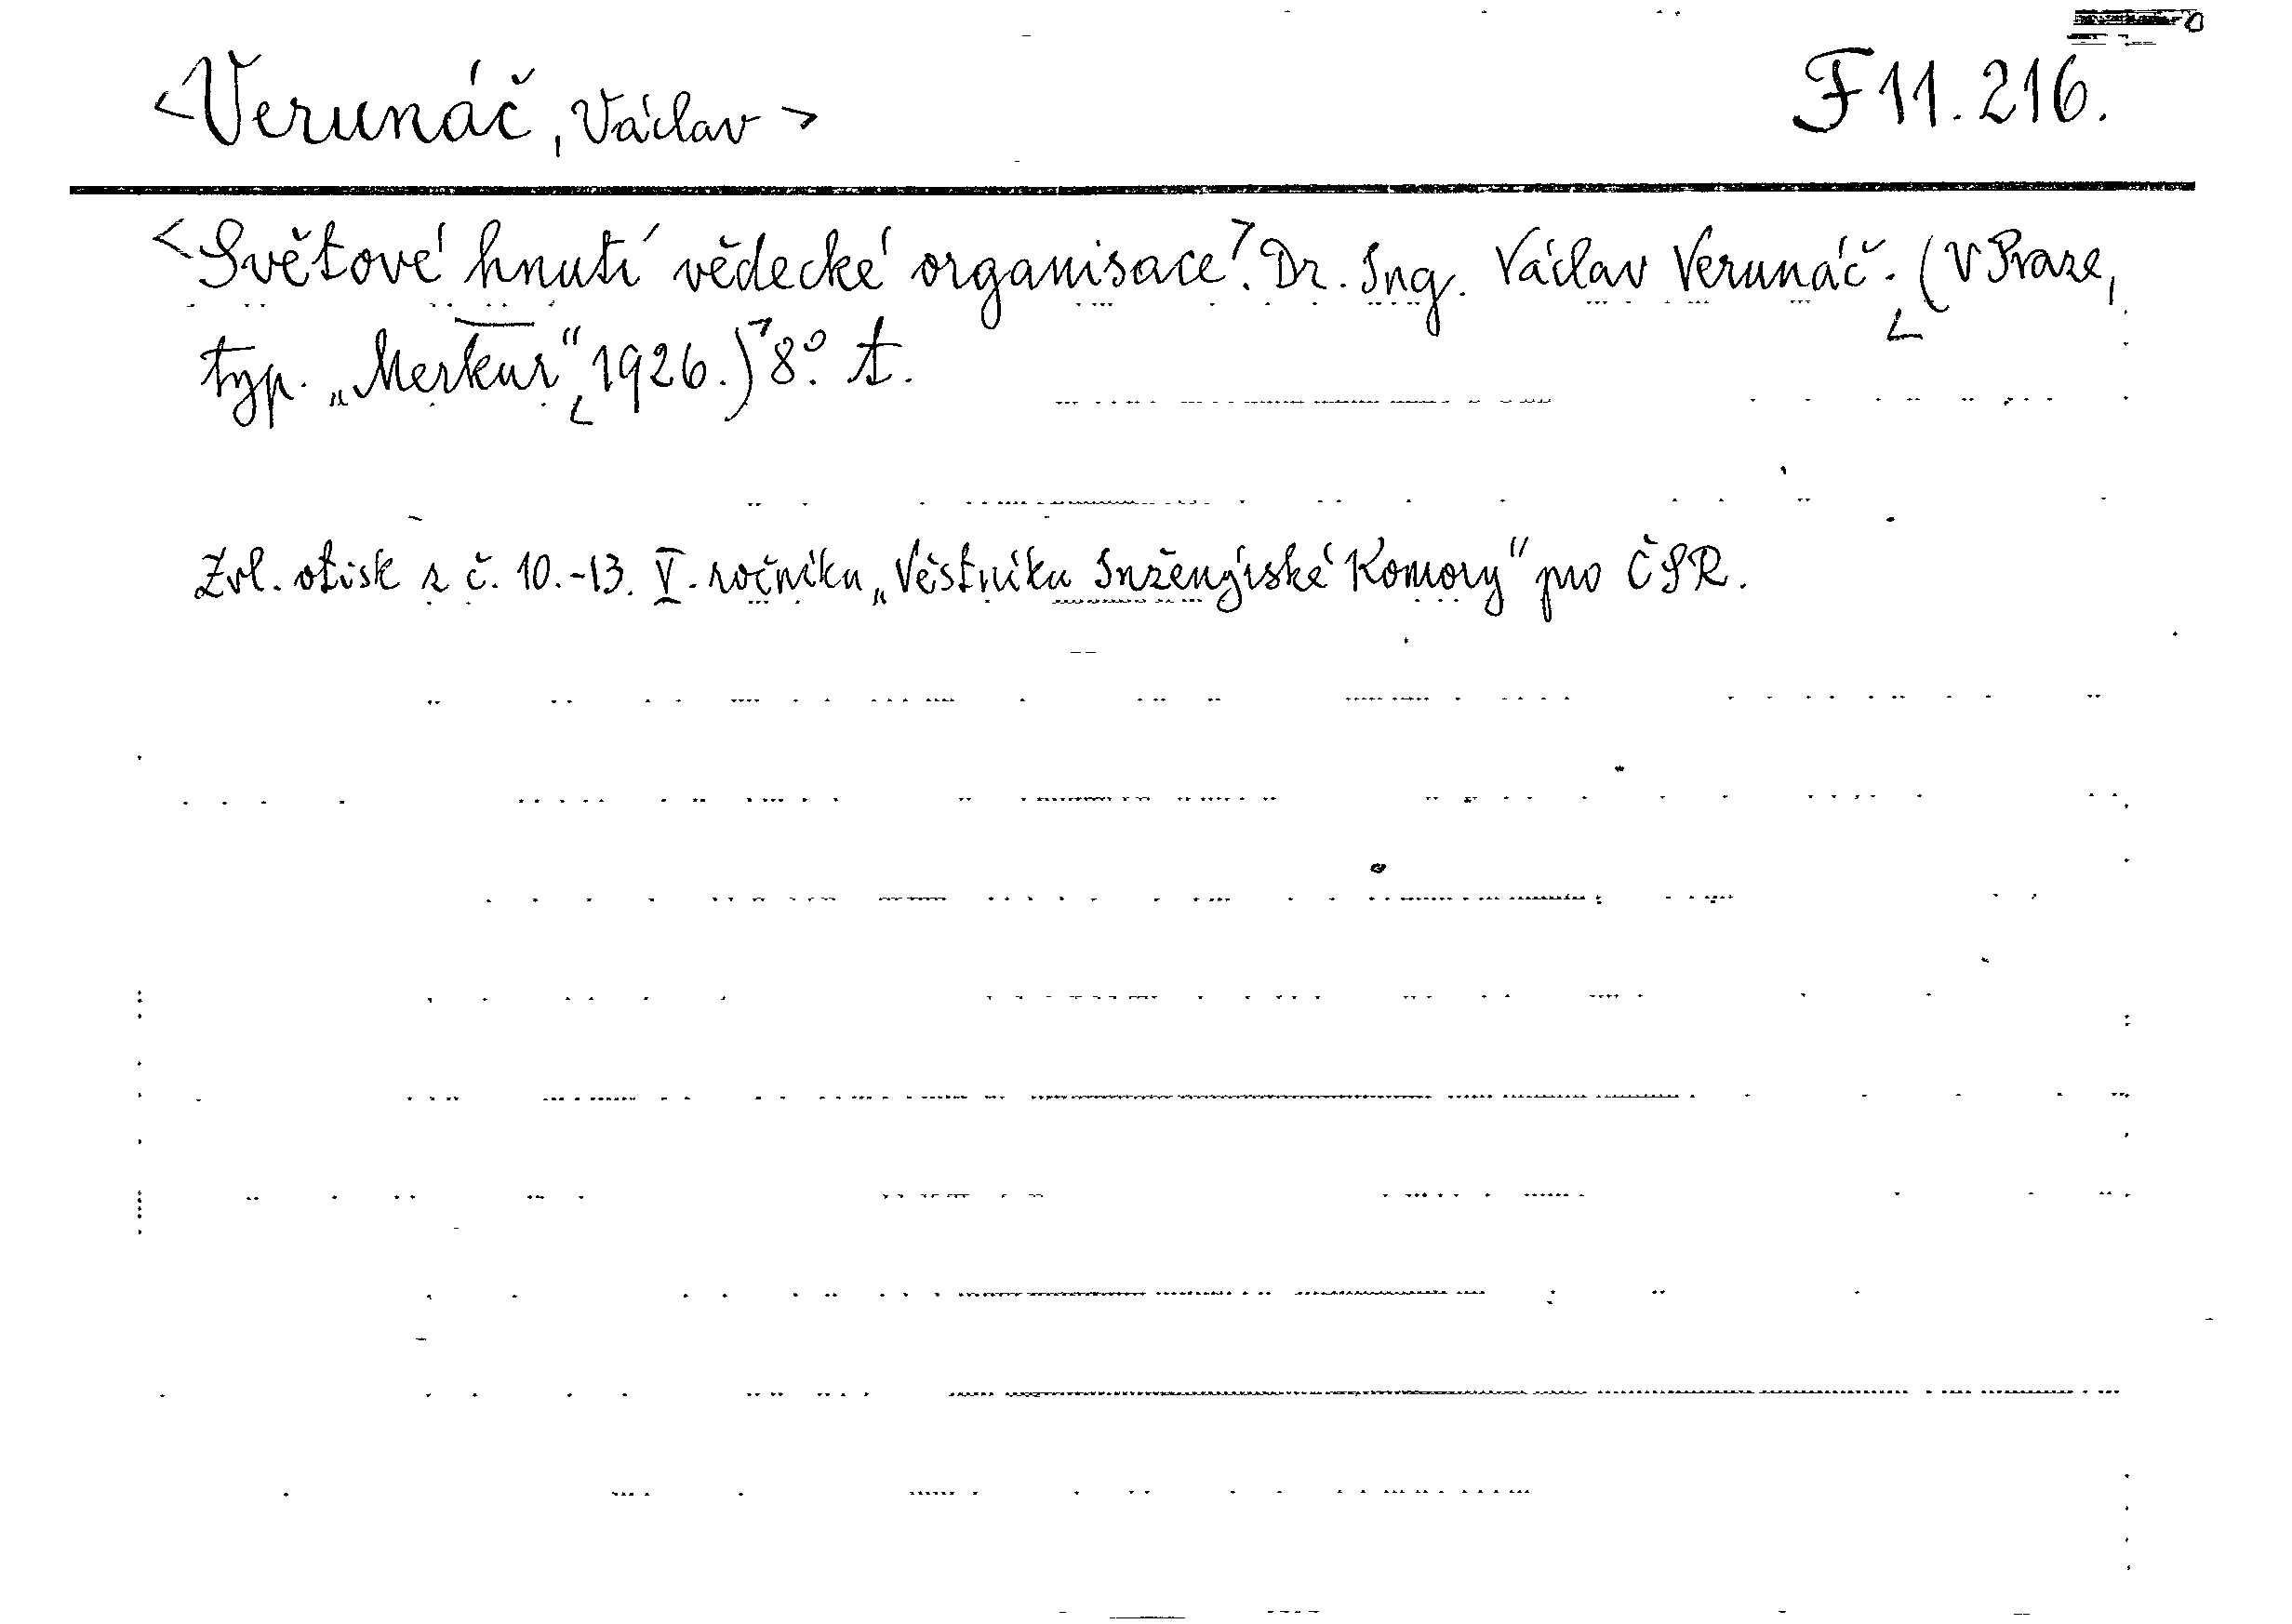 <Verunáč, Václav> F 11.216.
<Světové hnutí vědecké organisace.> Dr. Ing. Václav Verunáč. <(V Praze,
typ. „Merkur“, <1926.)> 8º. t.
Zvl. otisk z č. 10.-13. V. ročníku „Věstníku Inženýrské Komory“ pro ČSR.